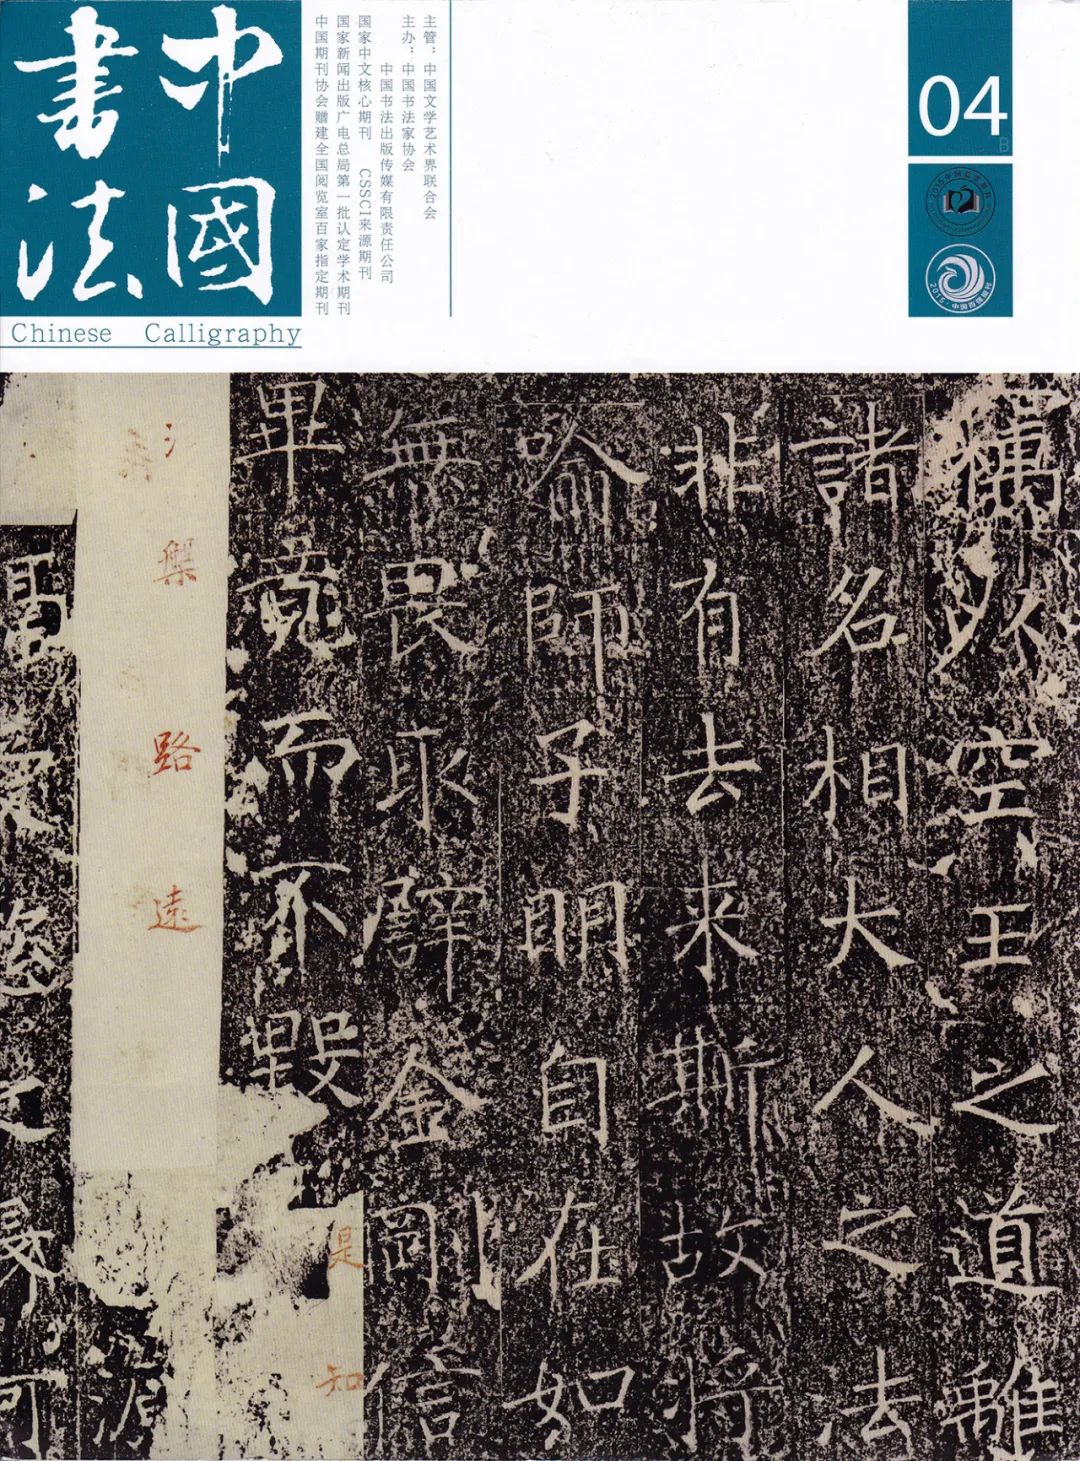 中國
書法
Chinese Calligraphy
主管：中国文学艺术界联合会
主办：中国书法家协会
中国书法出版传媒有限责任公司
国家中文核心期刊 CSSCI来源期刊
国家新闻出版广电总局第一批认定学术期刊
中国期刊协会赠建全国阅览室百家指定期刊
04
B
2015中国最美期刊
2015·中国百强报刊
以空王之道離
諸名相大人之法
非有去来斯故将
喻師子明自在如
無畏取辟金剛信
畢竟而不毀是知
槃路遠